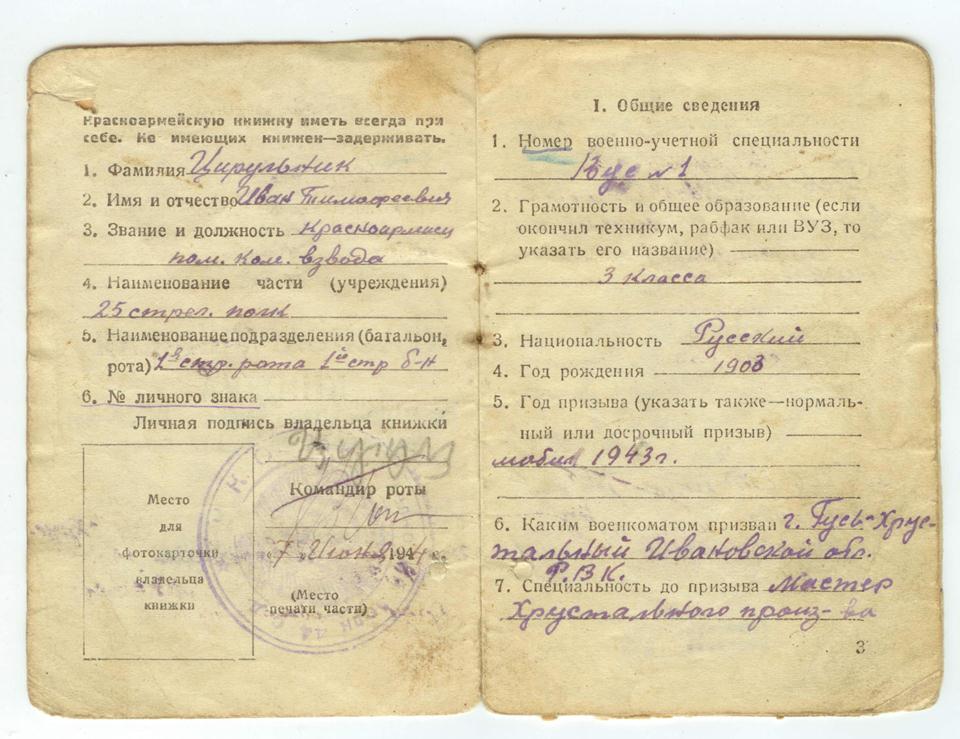 Красноармейскую книжку иметь всегда при
себе. Не имеющих книжек—задерживать.
1. Фамилия Цирульник
2. Имя и отчество Иван Тимофеевич
3. Звание и должность Красноармеец
пом. ком. взвода
4. Наименование части (учреждения)
25 стрел. полк
5. Наименование подразделения (батальон,
рота) 1я стр. рота 1й стр б-н
6. № личного знака
Личная подпись владельца книжки
Командир роты
„7" Июня 1944 г.
Место
для
фотокарточки
владельца
книжки
(Место
печати части)
I. Общие сведения
1. Номер военно-учетной специальности
Вус №1
2. Грамотность и общее образование (если
окончил техникум, рабфак или ВУЗ, то
указать его название)
3 класса
3. Национальность Русский
4. Год рождения 1903
5. Год призыва (указать также—нормаль-
ный или досрочный призыв)
мобил 1943г.
6. Каким военкоматом призван г. Гусь-Хрус-
тальный Ивановской обл.
Р.В.К.
7. Специальность до призыва Мастер
Хрустального произ-ва
3